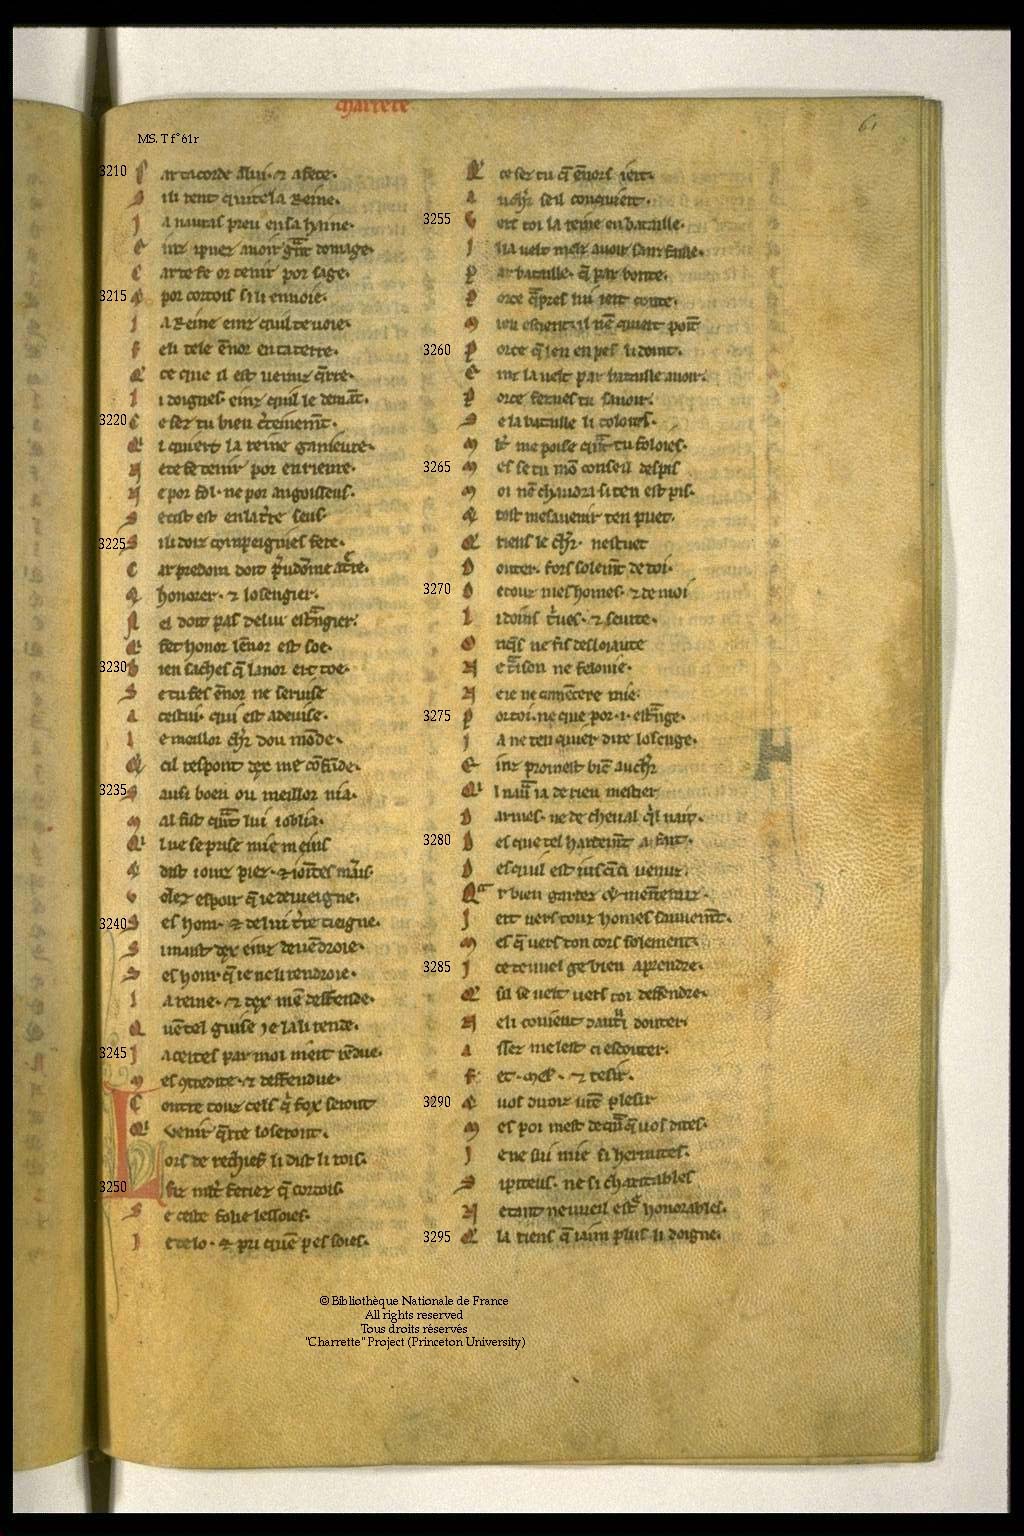 charrete
61
MS. T f° 61r
3210 F ar tacorde a lui ⁊ afete.
S ili rent quite la Reine.
J a nauras preu en la hyine.
E inz ipuez auoir gnt domage.
C ar te fe or tenir por sage.
3215 por cortois si li enuoie.
L a Reine einz quil te uoie.
F eli tele ēnor en ta terre.
Q ce que il est uenuz qrre.
L i doignes einz quil le demāt.
3220 C e sez tu bien
Q i quiert la reine ganieure.
N e te fe tenir por enrieure.
N e por fol. ne por angoisseus.
S e cist est en ta tre seus.
3225 S ili doiz compeignies fere.
C ar predom doit
honorer. ⁊ losengier.
N el doit pas de lui estngier.
Q fet honor lēnor est soe.
3230 B ien saches q lanor ert toe.
S e tu fes ēnor ne seruise
A cestui. qui est a deuise.
L e meillor chr dou mōde.
Q cil respont dex me cōfōde.
3235 S ausi boen ou meillor nia.
M al fist qnt lui ioblia.
Q i ne se prise mie meins
dist ioinz piez. ⁊ iointes mains
V olez espoir q ie deuieigne.
3240 S es hom. ⁊ de lui tre tieigne.
S imaist dex einz deuēdroie.
S es hom q ie ne li rendroie.
L a reine. ⁊ dex mē deffende.
Q uē tel guise je la li rende.
3245 J a certes par moi niert rēdue.
M es ꝯtredite. ⁊ deffendue.
C ontre touz cels q fox seront
Q venir qrre loseront.
L ors de rechief li dist li rois.
3250 filz mlt feriez q cortois.
S e ceste folie lessoies.
J e telo. ⁊ pri quē pes soies.
Q ce sez tu q ēnors iert.
A u chr se il conquiert.
3255 V ers toi la reine en bataille.
J l la uelt melz auoir sanz faille.
P ar bataille. q par bonte.
P orce q pres lui iert conte.
M ien escient il nē quiert point
3260 P orce q len en pes li doint.
E inz la uelt par bataille auoir.
P orce feroies tu sauoir.
S e la bataille li tolois.
M lt me poise qnt tu foloies.
3265 M es se tu mō conseil despis
M oi nē chaudra si ten est pis.
tost mesauenir ten puet.
Q riens le chr. nestuet
D outer. fors solemt de toi.
3270 D e touz mes homes. ⁊ de moi
L i doins trues. ⁊ seurte.
O nqs ne fis desloiaute
N e traison ne felonie.
N eie ne cōmēcere mie.
3275 P or toi. ne que por .i. estrnge.
J a ne ten quier dire losenge.
E inz promest biē au chr
Q l naura ia de rien mestier
D armes. ne de cheual
3280 D es que tel hardemt a fait.
D esquil est ius qci uenuz.
Q r bien gardez
J ert uers touz homes sauuemt.
M es q uers ton cors solement.
3285 J ce te uuel ge bien aprendre.
Q sil se uelt uers toi deffendre.
N eli couient dautrui douter.
A ssez me lest ci escouter.
F et. Mel. ⁊ tesir.
3290 uos duoiz ure plesir
M es poi mest de qnq uos dites.
J e ne sui mie si hermites.
S i piteus. ne si charitables
N e tant ne uueil estr honorables.
3295 Q la riens q iaim plus li doigne.
©Bibliothèque Nationale de France
All rights reserved
Tous droits réservés
"Charrette" Project (Princeton University)